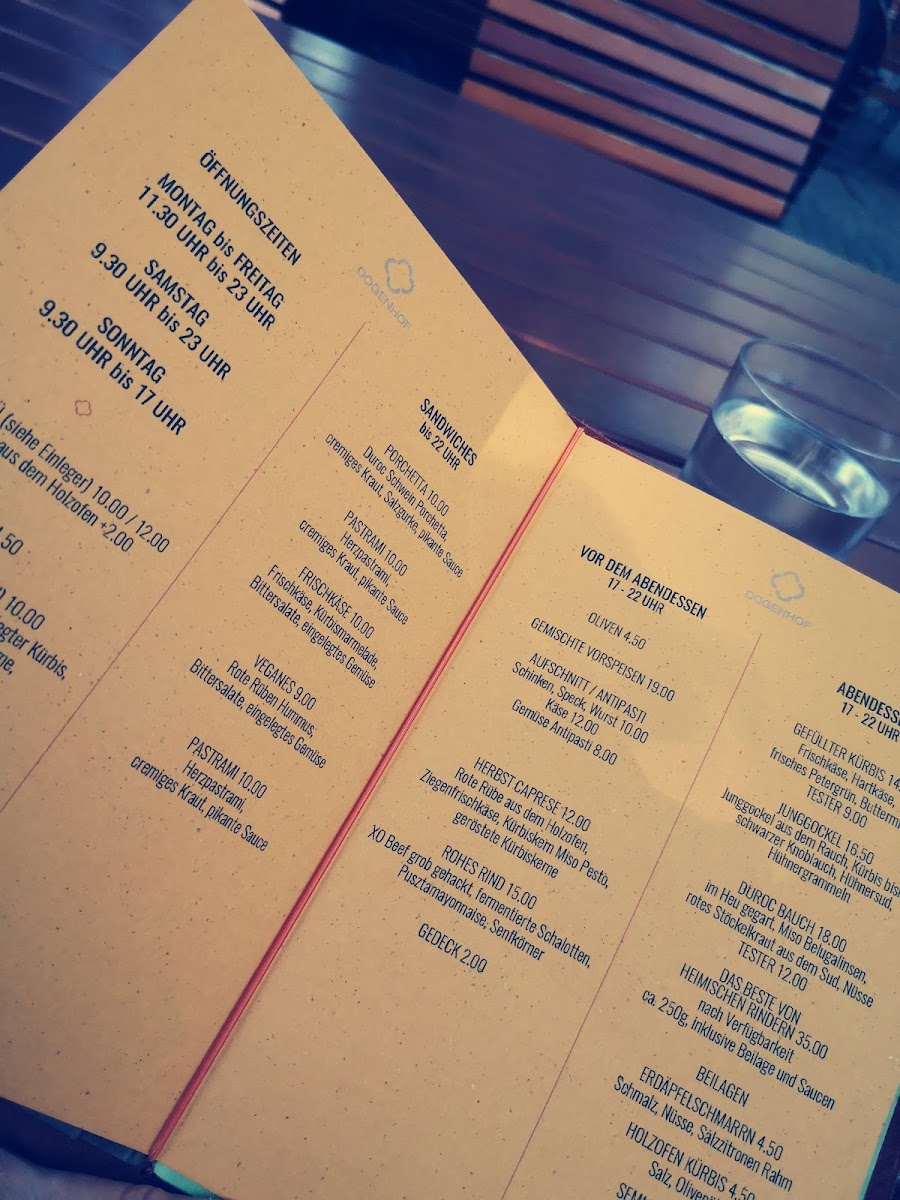 ÖFFNUNGSZEITEN
MONTAG bis FREITAG
11.30 UHR bis 23 UHR
SAMSTAG
9.30 UHR bis 23 UHR
SONNTAG
9.30 UHR bis 17 UHR
(siehe Einleger) 10.00 / 12.00
aus dem Holzofen +2.00
10.00
Kürbis,
DOGENHOF
SANDWICHES
bis 22 UHR
PORCHETTA 10.00
Duroc Schwein Porchetta,
cremiges Kraut, Salzgurke, pikante Sauce
PASTRAMI 10.00
Herzpastrami,
cremiges Kraut, pikante Sauce
FRISCHKÄSE 10.00
Frischkäse, Kürbismarmelade,
Bittersalate, eingelegtes Gemüse
VEGANES 9.00
Rote Rüben Hummus,
Bittersalate, eingelegtes Gemüse
PASTRAMI 10.00
Herzpastrami,
cremiges Kraut, pikante Sauce
VOR DEM ABENDESSEN
17 - 22 UHR
OLIVEN 4.50
GEMISCHTE VORSPEISEN 19.00
AUFSCHNITT / ANTIPASTI
Schinken, Speck, Wurst 10.00
Käse 12.00
Gemüse Antipasti 8.00
HERBST CAPRESE 12.00
Rote Rübe aus dem Holzofen,
Ziegenfrischkäse, Kürbiskern Miso Pesto,
geröstete Kürbiskerne
ROHES RIND 15.00
XO Beef grob gehackt, fermentierte Schalotten,
Pusztamayonnaise, Senfkörner
GEDECK 2.00
DOGENHOF
17 - 22 UHR
GEFÜLLTER KÜRBIS
Frischkäse, Hartkäse,
frisches Petergrün,
TESTER 9.00
JUNGGOCKEL 16.50
Junggockel aus dem Rauch, Kürbis
schwarzer Knoblauch, Hühnersud,
Hühnergrammeln
DUROC BAUCH 18.00
im Heu gegart, Miso Belugalinsen,
rotes Stöckelkraut aus dem Sud, Nüsse
TESTER 12.00
DAS BESTE VON
HEIMISCHEN RINDERN 35.00
nach Verfügbarkeit
ca. 250g, inklusive Beilage und Saucen
BEILAGEN
ERDÄPFELSCHMARRN 4.50
Schmalz, Nüsse, Salzzitronen Rahm
HOLZOFEN KÜRBIS 4.50
Salz,